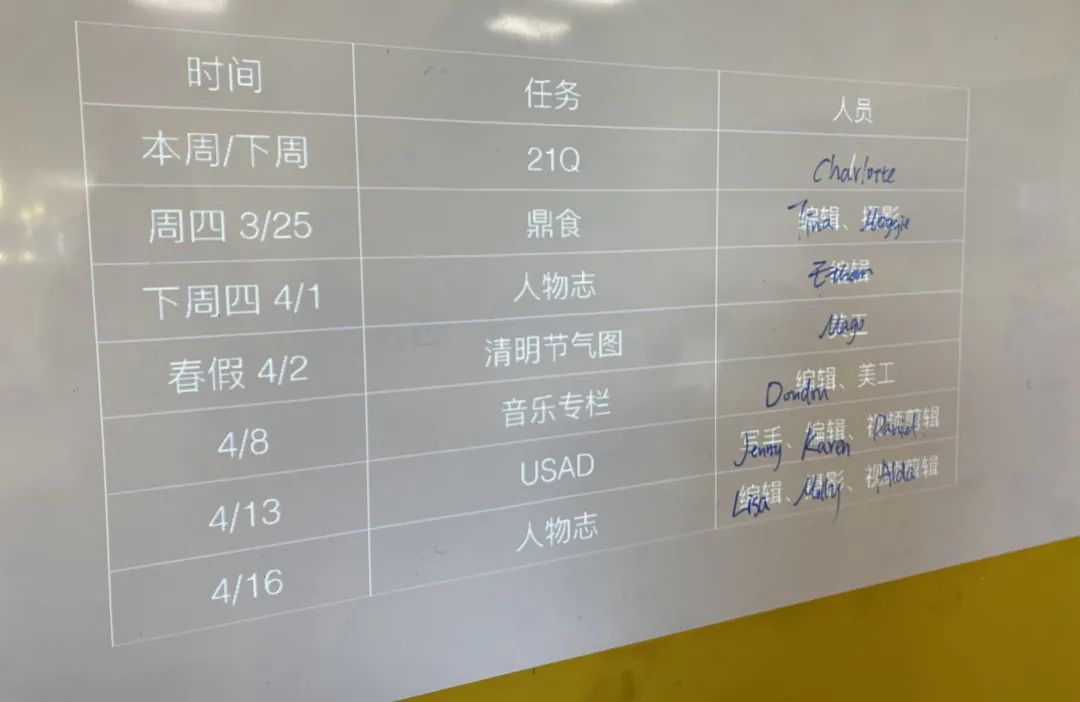 时间 任务 人员
本周/下周 21Q Charlotte
周四 3/25 鼎食 编辑、摄影 Tina Maggie
下周四 4/1 人物志 编辑 Ethan
春假 4/2 清明节气图 美工
4/8 音乐专栏 编辑、美工 Doudou
4/13 USAD 写手、编辑、视频剪辑 Jenny Karen David
4/16 人物志 编辑、摄影、视频剪辑 Lisa Molly Alda